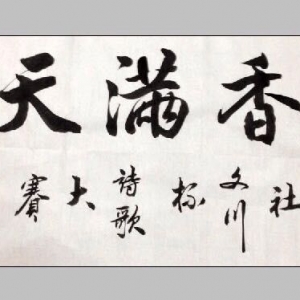 香滿天
社文川杯詩歌大賽